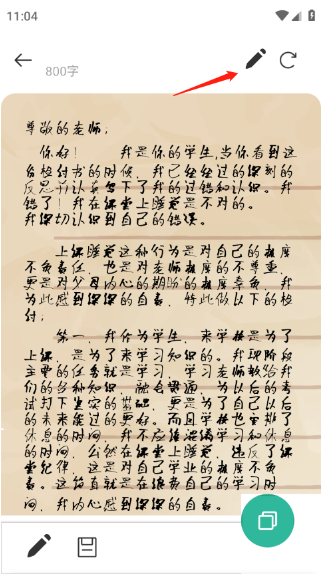 11:04
800字
尊敬的老师：
你好！ 我是你的学生，当你看到这
份检讨书的时候，我已经经过的深刻的
反思并认真写下了我的过错和认识。我
错了！在课堂上睡觉是不对的。
我深切认识到自己的错误。
上课睡觉这种行为是对自己的极度
不负责任，也是对老师极度的不尊重，
更是对父母内心的期盼的极度辜负，我
为此感到深深的自责，特此做以下的检
讨：
第一，我作为学生，来学校是为了
上课，是为了来学习知识的。我现阶段
主要的任务就是学习，学习老师教给我
们的各种知识，融会贯通，为以后的考
试打下坚实的基础，更是为了自己以后
的未来能过的更好。而且学校也安排了
休息的时间，我不应该混淆学习和休息
的时间，公然在课堂上睡觉，违反了课
堂纪律，这是对自己学业的极度不负
责。这简直就是在浪费自己的学习时
间，我内心感到深深的自责。